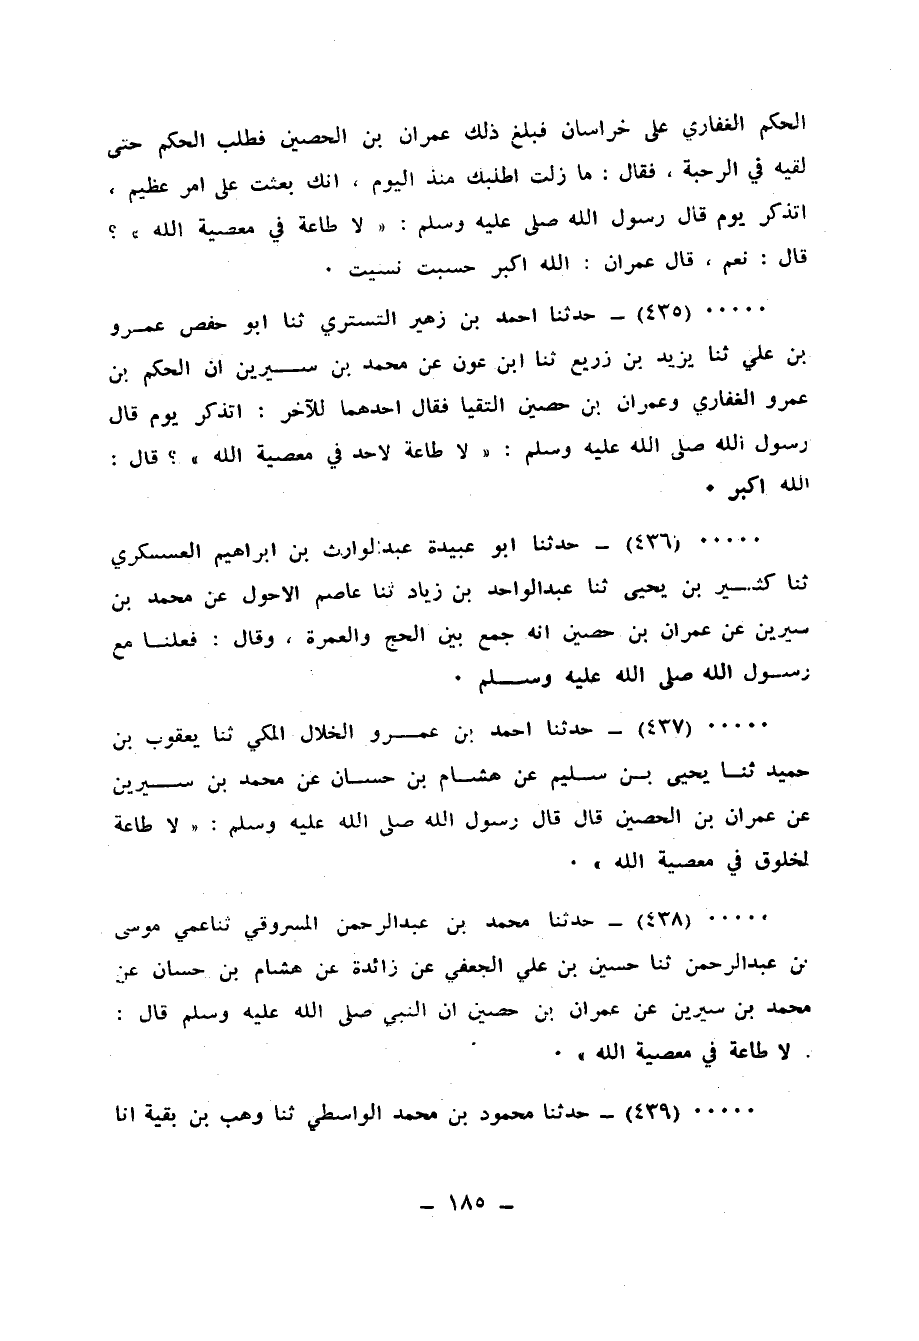 الحكم الغفاري على خراسان فبلغ ذلك عمران بن الحصين فطلب الحكم حتى
لقيه في الرحبة ، فقال : ما زلت اطلبك منذ اليوم ، انك بعثت على امر عظيم ،
اتذكر يوم قال رسول الله صلى عليه وسلم : « لا طاعة في معصية الله » ؟
قال : نعم ، قال عمران : الله اكبر حسبت نسيت ٠
٠٠٠٠٠ (٤٣٥) ــ حدثنا احمد بن زهير التستري ثنا ابو حفص عمـرو
بن علي ثنا يزيد بن زريع ثنا ابن عون عن محمد بن ســيرين ان الحكم بن
عمرو الغفاري وعمران بن حصين التقيا فقال احدهما للآخر : اتذكر يوم قال
رسول الله صلى الله عليه وسلم : « لا طاعة لاحد في معصية الله » ؟ قال :
الله اكبر ٠
٠٠٠٠٠ (٤٣٦) ــ حدثنا ابو عبيدة عبدالوارث بن ابراهيم العسكري
ثنا كثــير بن يحيى ثنا عبدالواحد بن زياد ثنا عاصم الاحول عن محمد بن
سيرين عن عمران بن حصين انه جمع بين الحج والعمرة ، وقال : فعلنــا مع
رســول الله صلى الله عليه وســلم ٠
٠٠٠٠٠ (٤٣٧) ــ حدثنا احمد بن عمــرو الخلال المكي ثنا يعقوب بن
حميد ثنــا يحيى بــن ســليم عن هشــام بن حســان عن محمد بن ســيرين
عن عمران بن الحصين قال قال رسول الله صلى الله عليه وسلم : « لا طاعة
لمخلوق في معصية الله » ٠
٠٠٠٠٠ (٤٣٨) ــ حدثنا محمد بن عبدالرحمن المسروقي ثناعمي موسى
بن عبدالرحمن ثنا حسين بن علي الجعفي عن زائدة عن هشام بن حسان عن
محمد بن سيرين عن عمران بن حصين ان النبي صلى الله عليه وسلم قال :
. لا طاعة في معصية الله » ٠
٠٠٠٠٠ (٤٣٩) ــ حدثنا محمود بن محمد الواسطي ثنا وهب بن بقية انا
ــ ١٨٥ ــ